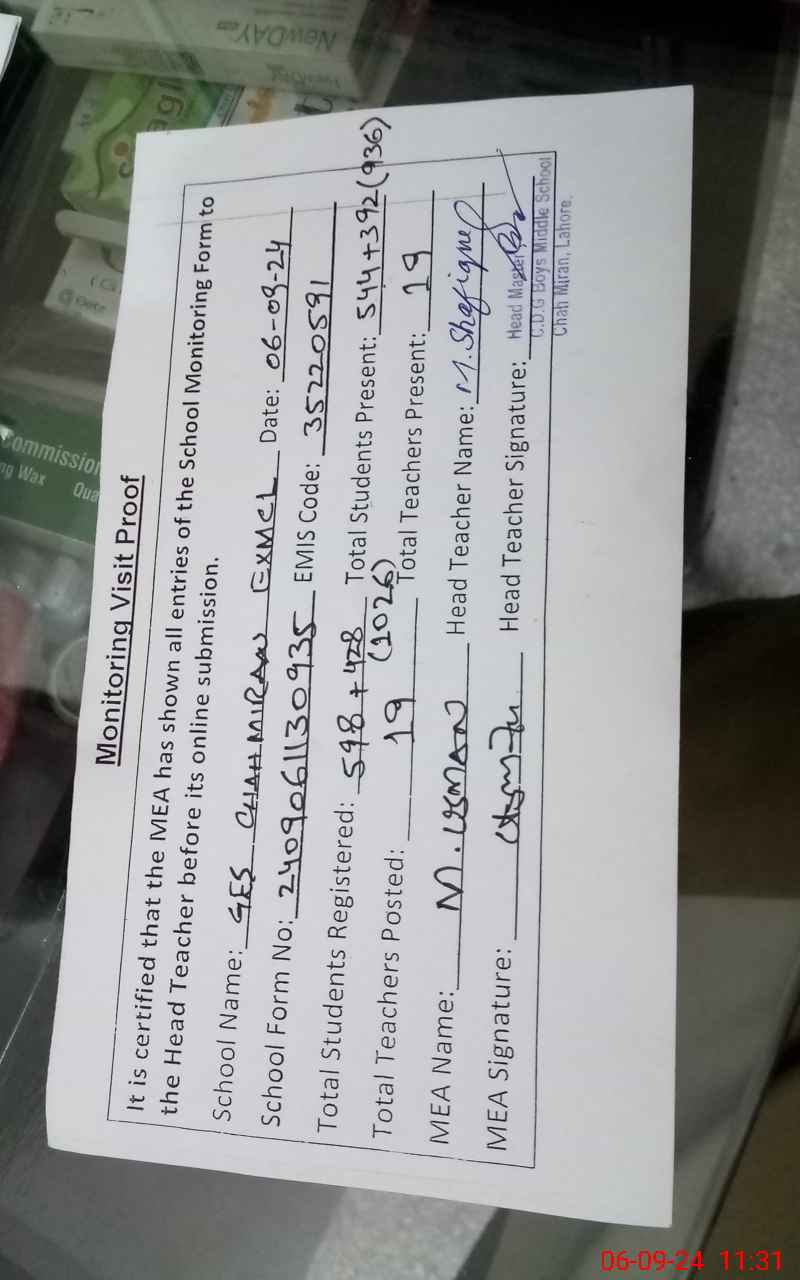 Monitoring Visit Proof
It is certified that the MEA has shown all entries of the School Monitoring Form to
the Head Teacher before its online submission.
School Name: GES CHAH MIRAN EXMCL Date: 06-09-24
School Form No: 2409061130935 EMIS Code: 35220591
Total Students Registered: 598 + 428 (1026) Total Students Present: 544+392 (936)
Total Teachers Posted: 19 Total Teachers Present: 19
MEA Name: M. USMAN Head Teacher Name: M. Shafique
MEA Signature: Head Teacher Signature:
Head Master
C.D.G Boys Middle School
Chah Miran, Lahore.
NewDAY
ommission
ng Wax Qua
06-09-24 11:31